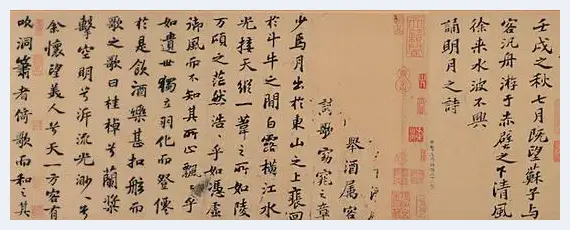 壬戌之秋七月既望蘇子与
客汎舟游于赤壁之下清風
徐来水波不興
誦明月之詩
舉酒属客
歌窈窕之章
少焉月出於東山之上裵回
於斗牛之間白露橫江水
光接天縱一葦之所如陵
万頃之茫然浩〻乎如憑虛
御風而不知其所止飄〻乎
如遺世獨立羽化而登僊
於是飲酒樂甚扣舷而
歌之歌曰桂棹兮蘭槳
擊空明兮泝流光渺〻兮
余懷望美人兮天一方客有
吹洞簫者倚歌而和之其